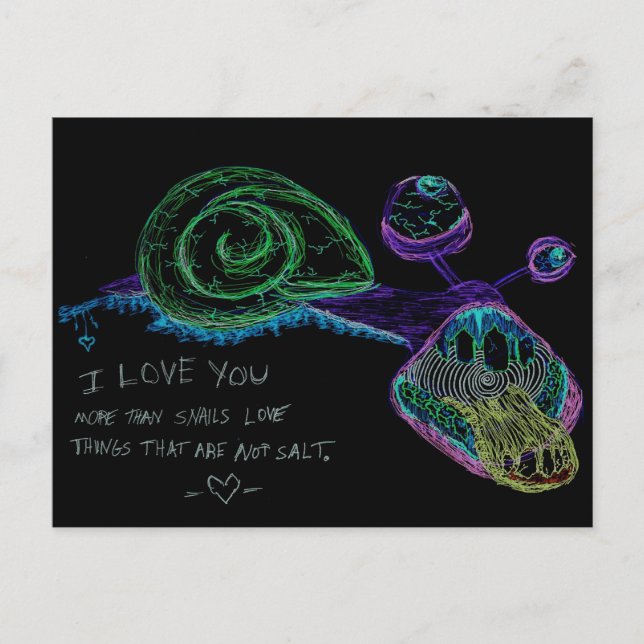 I LOVE YOU
MORE THAN SNAILS LOVE
THINGS THAT ARE NOT SALT.